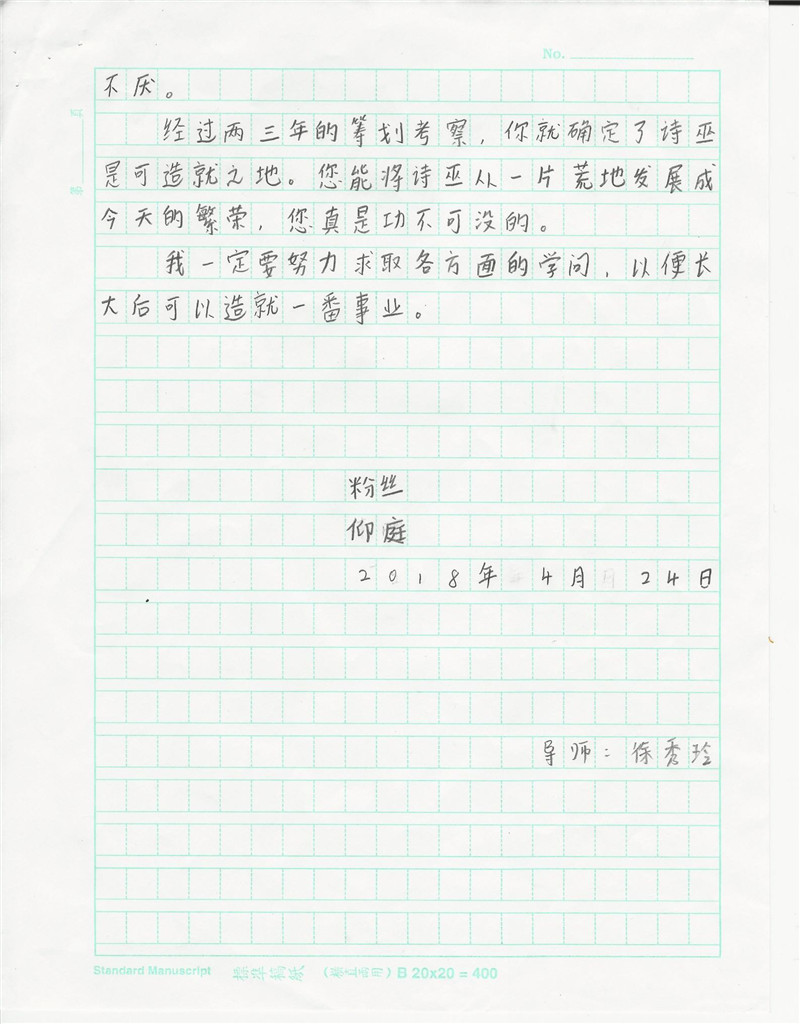 No.
第 頁
不厌。
经过两三年的筹划考察，你就确定了诗巫
是可造就之地。您能将诗巫从一片荒地发展成
今天的繁荣，您真是功不可没的。
我一定要努力求取各方面的学问，以便长
大后可以造就一番事业。
粉丝
仰庭
2018年 4月 24日
导师：徐秀玲
Standard Manuscript 標準稿紙 （橫直两用）B 20x20 = 400